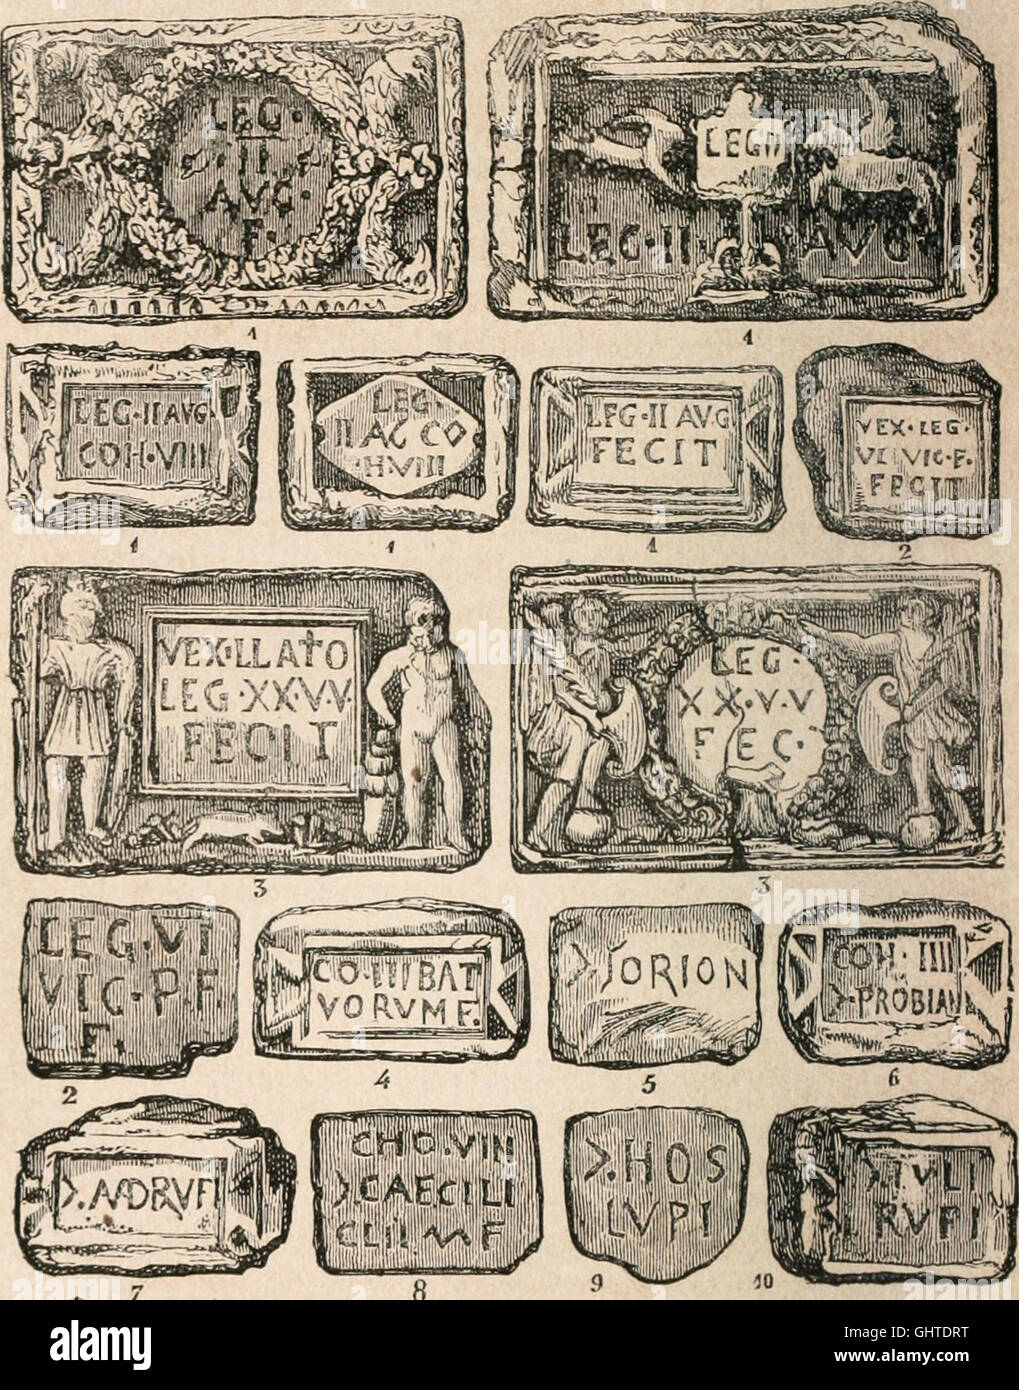 LEG·
II·
AVG·
F·
1
LEG II
LEG·II·AVG
1
LEG·II AVG·
COH·VIII
1
LEG·
II AG CO
·H·VIII
1
LEG·II AVG
FECIT
1
VEX·LEG·
VI VIC·F.
FECIT
2
VEX·LLATO
LEG·XX·V·V·
FECIT
3
LEG·
XX·V·V
FEC·
3
LEG·VI
VIC·P·F.
F.
2
CO·IIII BAT
VORVM F.
4
>·SORION
5
COH·IIII
>·PROBIAN
6
7
CHO·VIII
>·CAECILI
8
>·HOS
LUPI
9
>·IVLI
RVFI
10
alamy
Image ID: GHTDRT
www.alamy.com